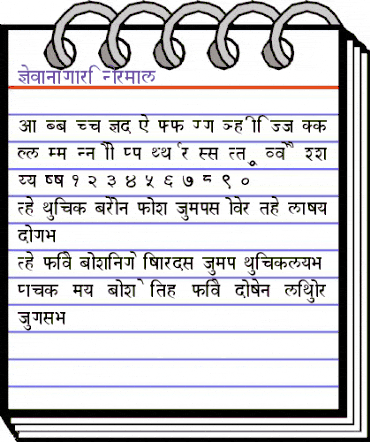 ज्ञेवानागारि न्निरमाल
आ ब्ब च्च ज्ञद ऐ फ्फ ग्ग ञ्ही िज्ज क्क
ल्ल म्म न्न ाी प्प थ्थ र्र स्स त्त ू व्वै श्श
य्य ष्ष १ २ ३ ४ ५ ६ ७ ८ ९ ०
त्हे थुचिक बरोैन फोश जुमपस ोवेर तहे लाषय
दोगभ
त्हे फविे बोशनिगे षािरदस जुमप थुचिकलयभ
प्ाचक मय बोश े तिह फविे दोषेन लथिुोर
जुगसभ